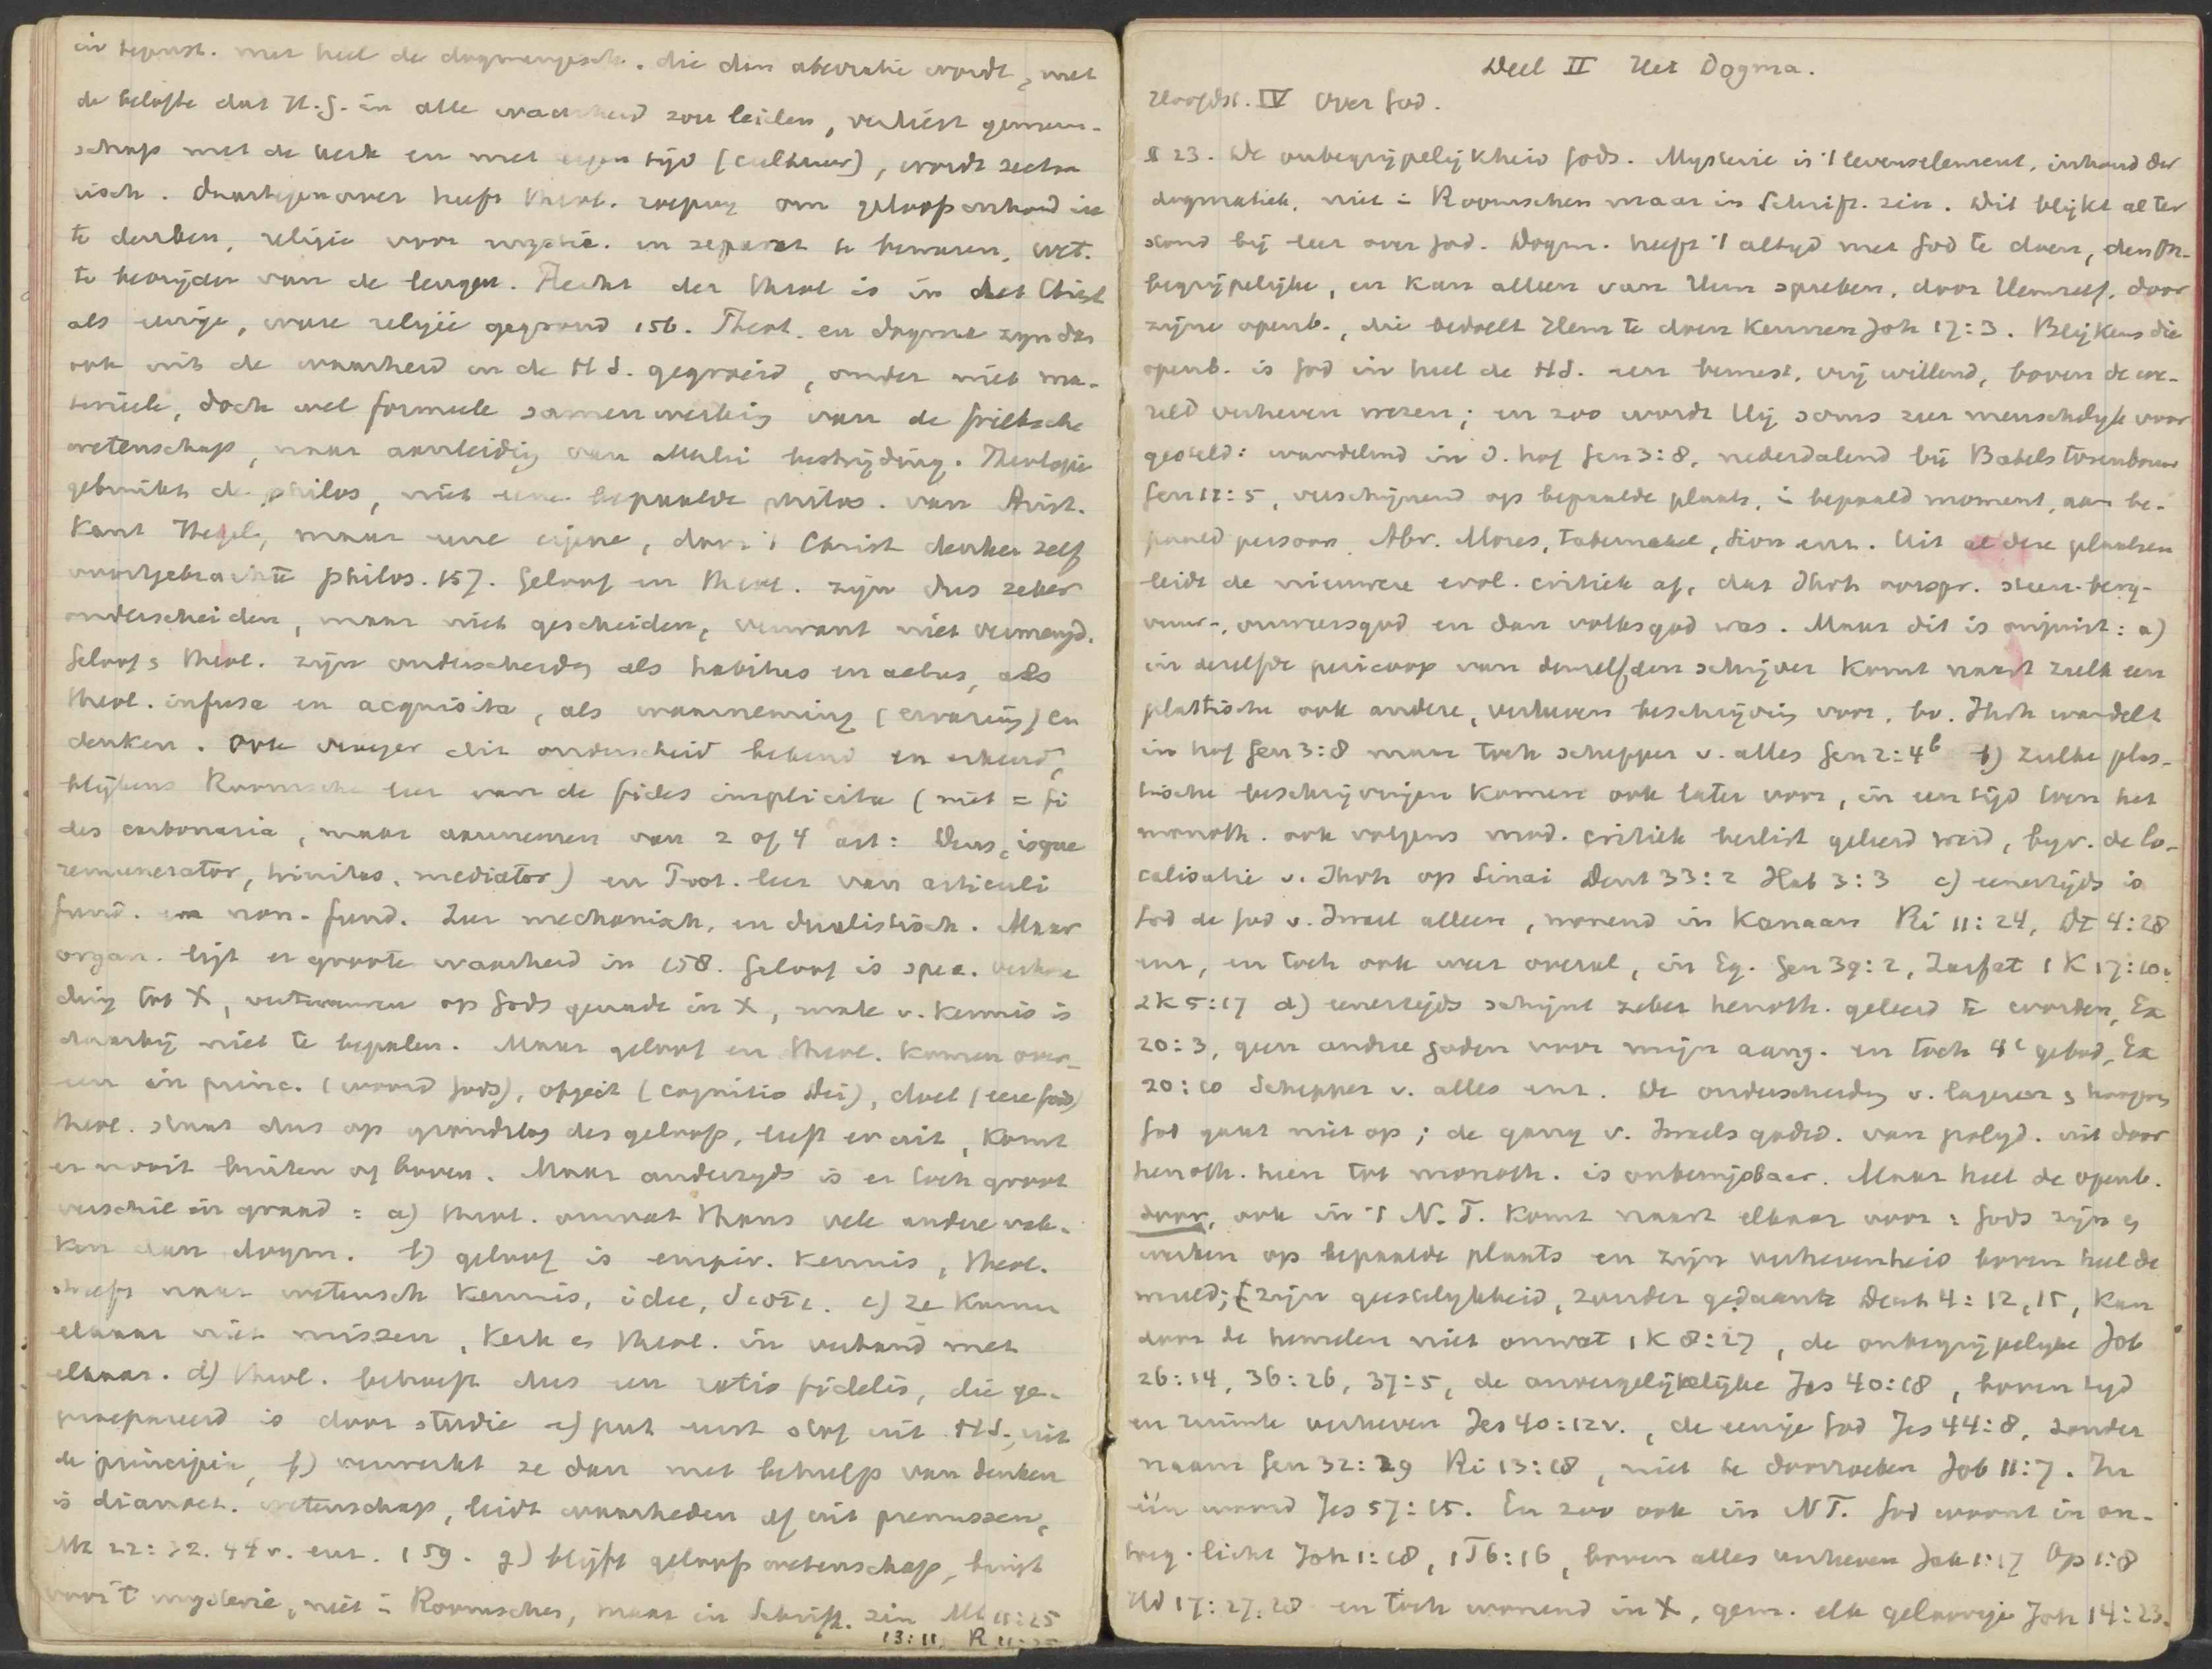 in tegenst. met heel de dogmengesch. die dan aberratie wordt, met
de belofte dat H.G. in alle waarheid zou leiden, verliest gemeen-
schap met de kerk en met eigen tijd (cultuur), wordt secta
risch. Daartegenover heeft theol. roeping om geloofsinhoud in
te denken, religie voor en separat. te bewaren, wet.
te bevrijden van de leugen. Recht der theol is in het Christ
als eenige, ware religie gegrond 156. Theol. en dogma zijn dus
ook uit de waarheid in de H S. gegroeid, onder niet ma-
terieele, doch wel formeele samenwerking van de grieksche
wetenschap, naar aanleiding van allerlei bestrijding. Theologie
gebruikt de philos, niet eene bepaalde philos. van Arist.
Kant Hegel, maar eene eigene, door 't Christ denken zelf
voortgebrachte philos. 157. Geloof en theol. zijn dus zeker
onderscheiden, maar niet gescheiden, evenmin niet vermengd.
Geloof & theol. zijn onderscheiden als habitus en actus, als
theol. infusa en acquisita, als waarneming (ervaring) en
denken. Ook vroeger dit onderscheid bekend en erkend,
blijkens Roomsche leer van de fides implicita (niet = fi
des carbonaria, maar aannemen van 2 of 4 art: Deus, isque
remunerator, trinitas, mediator) en Prot. leer van articuli
fund. en non-fund. Zeer mechanisch, en dualistisch. Maar
organ. ligt er groote waarheid in 158. Geloof is spec. verhou
ding tot X, vertrouwen op Gods genade in X, mate v. kennis is
daarbij niet te bepalen. Maar geloof en theol. komen over-
een in princ. (woord Gods), object (cognitio Dei), doel (eere Gods)
theol. staat dus op grondslag des geloofs, leeft er uit, komt
er nooit buiten of boven. Maar anderzijds is er toch groot
verschil in graad: a) theol. omvat thans vele andere vak-
ken dan dogm. b) geloof is empir. kennis, theol.
streeft naar wetensch kennis, idee, c) ze kunnen
elkaar niet missen, kerk en theol. in verband met
elkaar. d) theol. behoeft dus een ratio fidelis, die ge-
praepareerd is door studie e) put eerst stof uit HS, uit
de principia, f) verwerkt ze dan met behulp van denken
is dianoet. wetenschap, leidt waarheden af uit premissen,
Mt 22:32. 44 v. enz. 159. g) blijft geloofswetenschap, buigt
voor 't mysterie, niet in Roomschen, maar in Schrift. zin Mt 11:25
13:11, R 11:25
Deel II Het Dogma.
Hoofdst. IV Over God.
§ 23. De onbegrijpelijkheid Gods. Mysterie is 't levenselement, inhoud der
dogmatiek, niet in Roomschen maar in Schrift. zin. Dit blijkt al ter
stond bij leer over God. Dogm. heeft 't altijd met God te doen, den On-
begrijpelijke, en kan alleen van Hem spreken, door Hemzelf, door
zijne openb., die bedoelt Hem te doen kennen Joh 17:3. Blijkens die
openb. is God in heel de HS. een bewust, vrij willend, boven de we-
reld verheven wezen; en zoo wordt Hij soms zeer menschelijk voor
gesteld: wandelend in d. hof Gen 3:8, nederdalend bij Babels torenbouw
Gen 11:5, verschijnend op bepaalde plaats, in bepaald moment, aan be-
paald persoon, Abr. Mozes, Tabernakel, Sion enz. Uit al deze plaatsen
leidt de nieuwere evol. critiek af, dat Jhvh oorspr. steen-berg-
vuur-, onweersgod en dan volksgod was. Maar dit is onjuist: a)
in dezelfde pericoop van denzelfden schrijver komt naast zulk een
plastische ook andere, verheven beschrijving voor, bv. Jhvh wandelt
in hof Gen 3:8 maar toch schepper v. alles Gen 2:4b b) zulke plas-
tische beschrijvingen komen ook later voor, in een tijd toen het
monoth. ook volgens mod. critiek beslist geleerd werd, bijv. de lo-
calisatie v. Jhvh op Sinai Deut 33:2 Hab 3:3 c) eenerzijds is
God de God v. Israel alleen, wonend in Kanaan Ri 11:24, Dt 4:28
enz, en toch ook weer overal, in Eg. Gen 39:2, Zarfat 1 K 17:10.
2 K 5:17 d) eenerzijds schijnt zeker henoth. geleerd te worden, Ex
20:3, geen andre goden voor mijn aang. en toch 4e gebod, Ex
20:10 Schepper v. alles enz. De onderscheiding v. lageren & hoogeren
God gaat niet op; de gang v. Israels godsd. van polyd. uit door
henoth. heen tot monoth. is onbewijsbaar. Maar heel de openb.
door, ook in 't N.T. komt naast elkaar voor: Gods zijn &
werken op bepaalde plaats en zijn verhevenheid boven heel de
wereld; zijn geestelijkheid, zonder gedaante Deut 4:12,15, kan
door de hemelen niet omvat 1 K 8:27, de onbegrijpelijke Job
26:14, 36:26, 37:5, de onvergelijkelijke Jes 40:18, boven tijd
en ruimte verheven Jes 40:12v., de eenige God Jes 44:8, zonder
naam Gen 32:29 Ri 13:18, niet te doorzoeken Job 11:7. In
één woord Jes 57:15. En zoo ook in NT. God woont in on-
toeg. licht Joh 1:18, 1 T 6:16, boven alles verheven Jak 1:17 Op 1:8
Hd 17:27,28 en toch wonend in X, gem. elk geloovige Joh 14:23.